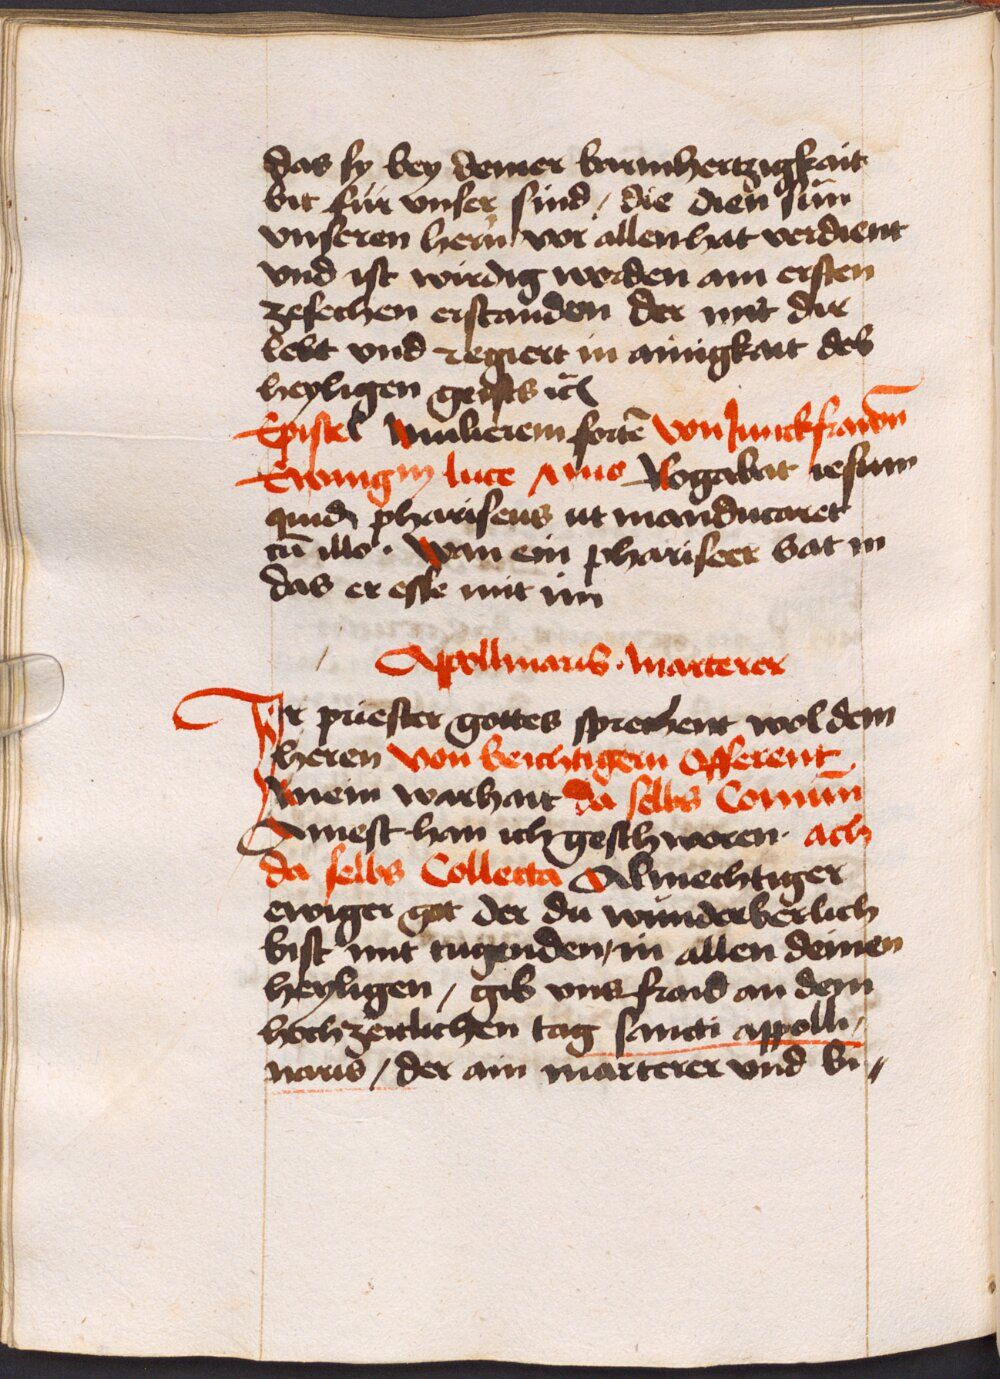 das sy bey deiner barmhertzigkait
bit für vnser sind / die dien sun̄
vnseren hern̄ vor allen hat verdient
vnd ist wirdig worden am ersten
zesechen erstanden der mit dir
lebt vnd regiert in ainigkait des
heyligen geists ꝛc̄
Epistel Mulierem fortē von Junckfrawn̄
Ewangm̄ luce Rogabat iesum
quidā phariseus ut manducaret
cū illo · Wan ein phariseer bat in
das er esse mit im
Appollinaris · marterer
Ir priester gottes sprechent wol dem
heren von beichtigern Offerent
Mein warhait da selbs Comun̄
Ainest han ich geschworen · ach
da selbs Collecta Almechtiger
ewiger got der du wunderberlich
bist mit tugenden / in allen deinen
heyligen / gib vns fraid an dem
hochzeitlichen tag sancti appolli /
naris / der ain marterer vnd bi //